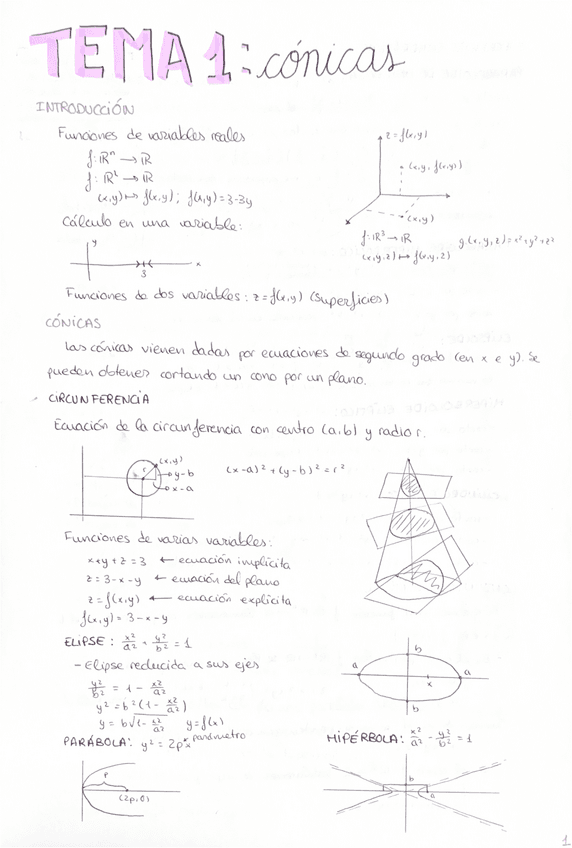 TEMA 1: cónicas
INTRODUCCIÓN
Funciones de variables reales
f: ℝⁿ → ℝ
f: ℝ² → ℝ
(x,y) ↦ f(x,y); f(x,y)=3-3y
z=f(x,y)
(x,y,f(x,y))
(x,y)
f: ℝ³ → ℝ
(x,y,z) ↦ f(x,y,z)
g(x,y,z)=x²+y²+z²
Cálculo en una variable:
y
3
x
Funciones de dos variables: z=f(x,y) (superficies)
CÓNICAS
Las cónicas vienen dadas por ecuaciones de segundo grado (en x e y). Se
pueden obtener cortando un cono por un plano.
CIRCUNFERENCIA
Ecuación de la circunferencia con centro (a,b) y radio r.
(x,y)
r
y-b
x-a
(x-a)² + (y-b)² = r²
Funciones de varias variables:
x+y+z=3 ← ecuación implícita
z=3-x-y ← ecuación del plano
z=f(x,y) ← ecuación explícita
f(x,y)=3-x-y
ELIPSE: x²/a² + y²/b² = 1
- Elipse reducida a sus ejes
y²/b² = 1 - x²/a²
y² = b²(1 - x²/a²)
y = b√(1 - x²/a²) y=f(x)
a
b
x
a
b
PARÁBOLA: y² = 2px parámetro
P
(2p,0)
HIPÉRBOLA: x²/a² - y²/b² = 1
b
a
1